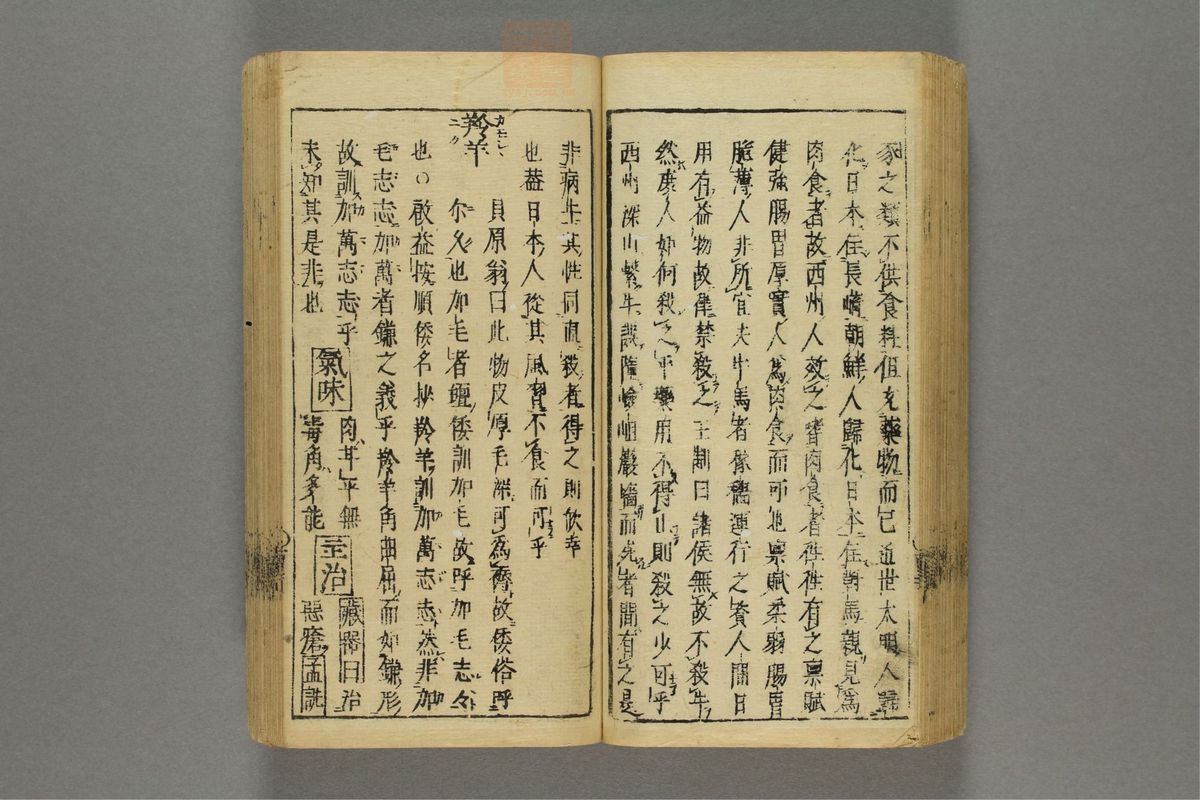 豕之類不供食料但充藥物而已近世太明人歸
化日本住長崎朝鮮人歸化日本住對馬親見為
肉食者故西州人效之嗜肉食者徃徃有之禀賦
健強腸胃厚實人為肉食而可也禀賦柔弱腸胃
脆薄人非所宜夫牛馬者稼穡運行之資人間日
用有益物故律禁殺之王制曰諸侯無故不殺牛
然庶人如何殺之乎藥用不得止則殺之少可乎
西州深山繫牛誤墮嶮岨巖牆而死者間有之是
非病生其性同直殺者得之則欣幸
也葢日本人從其風習不食而可乎
羚羊
カモシヽ
ニク
貝原翁曰此物皮厚毛深可為褥故倭俗呼
尓久也加毛者氊倭訓加毛故呼加毛志々
也○啟益按順倭名抄羚羊訓加萬志志然非加
毛志志加萬者鎌之義乎羚羊角曲屈而如鎌形
故訓加萬志志乎
未知其是非也
氣味
肉甘平無
毒角多能
主治
藏器曰治
惡瘡孟詵